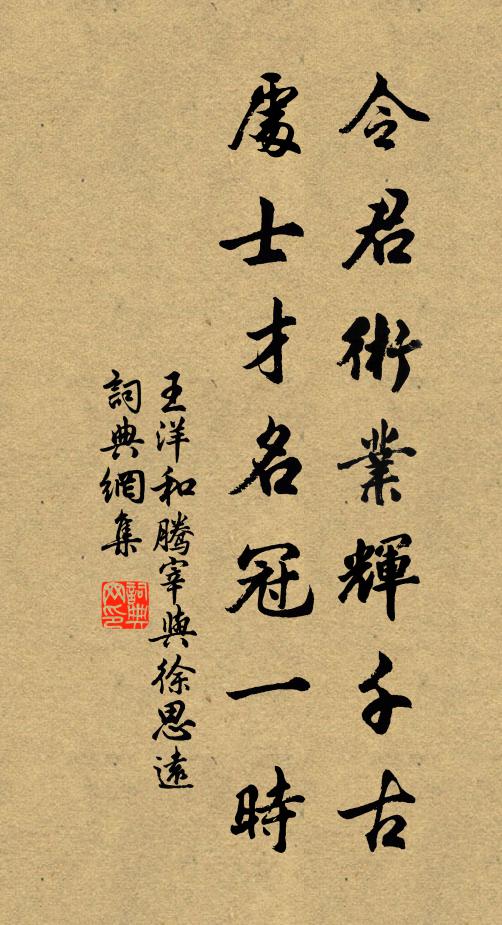 令君術業輝千古
處士才名冠一時
王洋和騰宰與徐思遠
詞典網集
詞典网印